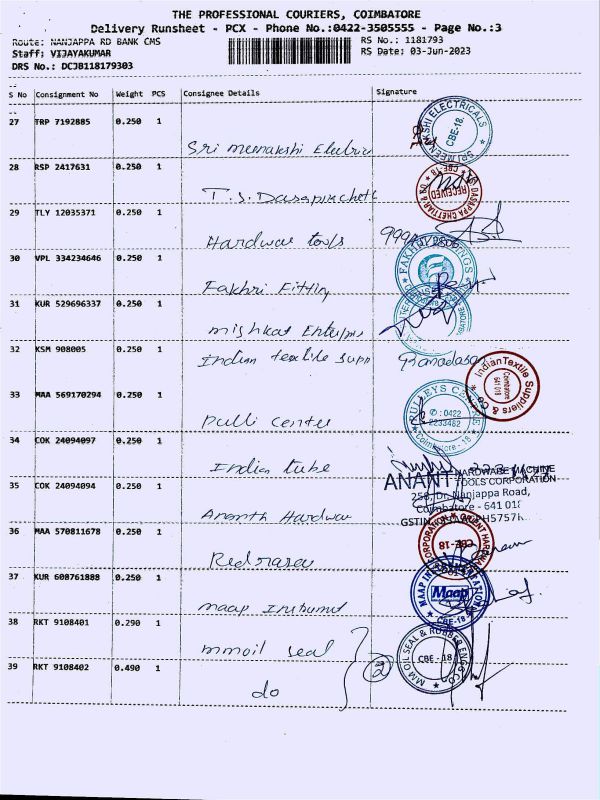 THE PROFESSIONAL COURIERS, COIMBATORE
Delivery Runsheet - PCX - Phone No.:0422-3505555 - Page No.:3
Route: NANJAPPA RD BANK CMS
RS No.: 1181793
Staff: VIJAYAKUMAR
RS Date: 03-Jun-2023
DRS No.: DCJB118179303
S No Consignment No Weight PCS Consignee Details Signature
27 TRP 7192885 0.250 1
Sri meenakshi
SRI MEENAKSHI ELECTRICALS CBE-18
28 RSP 2417631 0.250 1
T.S. Dasappachett
RECEIVED CBE-18
29 TLY 12035371 0.250 1
Hardwar tools
30 VPL 334234646 0.250 1
Fakhri Fitting
31 KUR 529696337 0.250 1
mishkat Enterpris
32 KSM 908005 0.250 1
Indian textile supp
Indian Textile Suppliers & Co Coimbatore 641 018
33 MAA 569170294 0.250 1
Pulli center
PULLEYS CENTRE ✆ : 0422 2233482 Coimbatore - 18
34 COK 24094097 0.250 1
Indian tube
35 COK 24094094 0.250 1
Ananth Hardwar
ANANT HARDWARE MACHINE
TOOLS CORPORATION
258, Dr. Nanjappa Road,
Coimbatore - 641 018
GSTIN
36 MAA 570811678 0.250 1
CORPORATION ORIENT HARDWARE CBE-18
37 KUR 608761888 0.250 1
maap Instrumnt
Maap CBE-18
38 RKT 9108401 0.290 1
mmoil seal
MM OIL SEAL & RUBBER ENGG CO CBE - 18
39 RKT 9108402 0.490 1
do
2